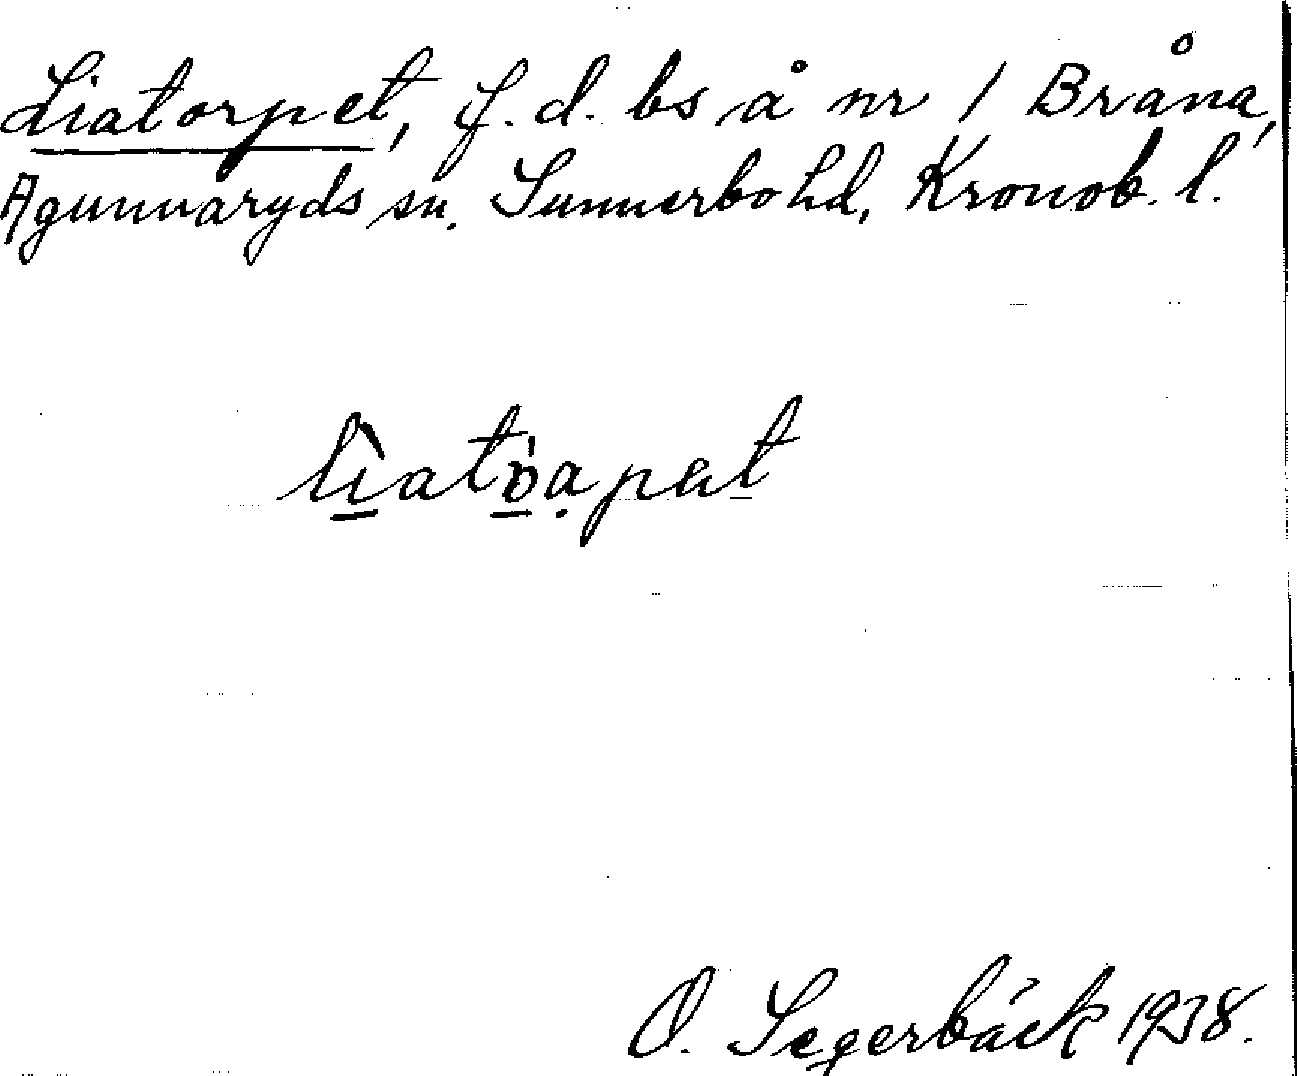 Liatorpet, f. d. bs å nr 1 Bråna,
Agunnaryds sn. Sunnerbo hd, Kronob. l.
O. Segerbäck 1938.